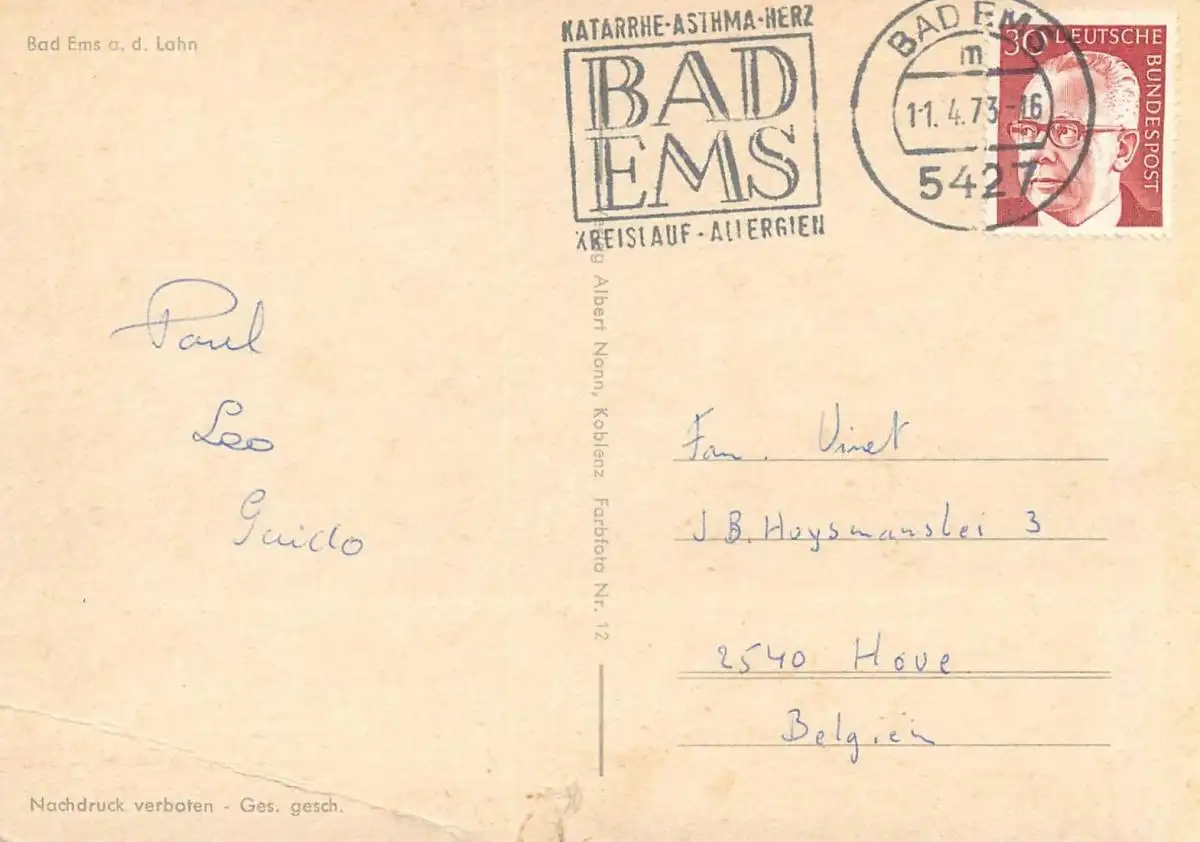 Bad Ems a. d. Lahn
KATARRHE-ASTHMA-HERZ
BAD
EMS
KREISLAUF-ALLERGIEN
BAD EMS
m
11. 4.73-16
5427
30 DEUTSCHE
BUNDESPOST
Paul
Leo
Guido
Albert Nonn, Koblenz Farbfoto Nr. 12
Fam. Vinet
J.B. Huysmanslei 3
2540 Hove
Belgien
Nachdruck verboten - Ges. gesch.